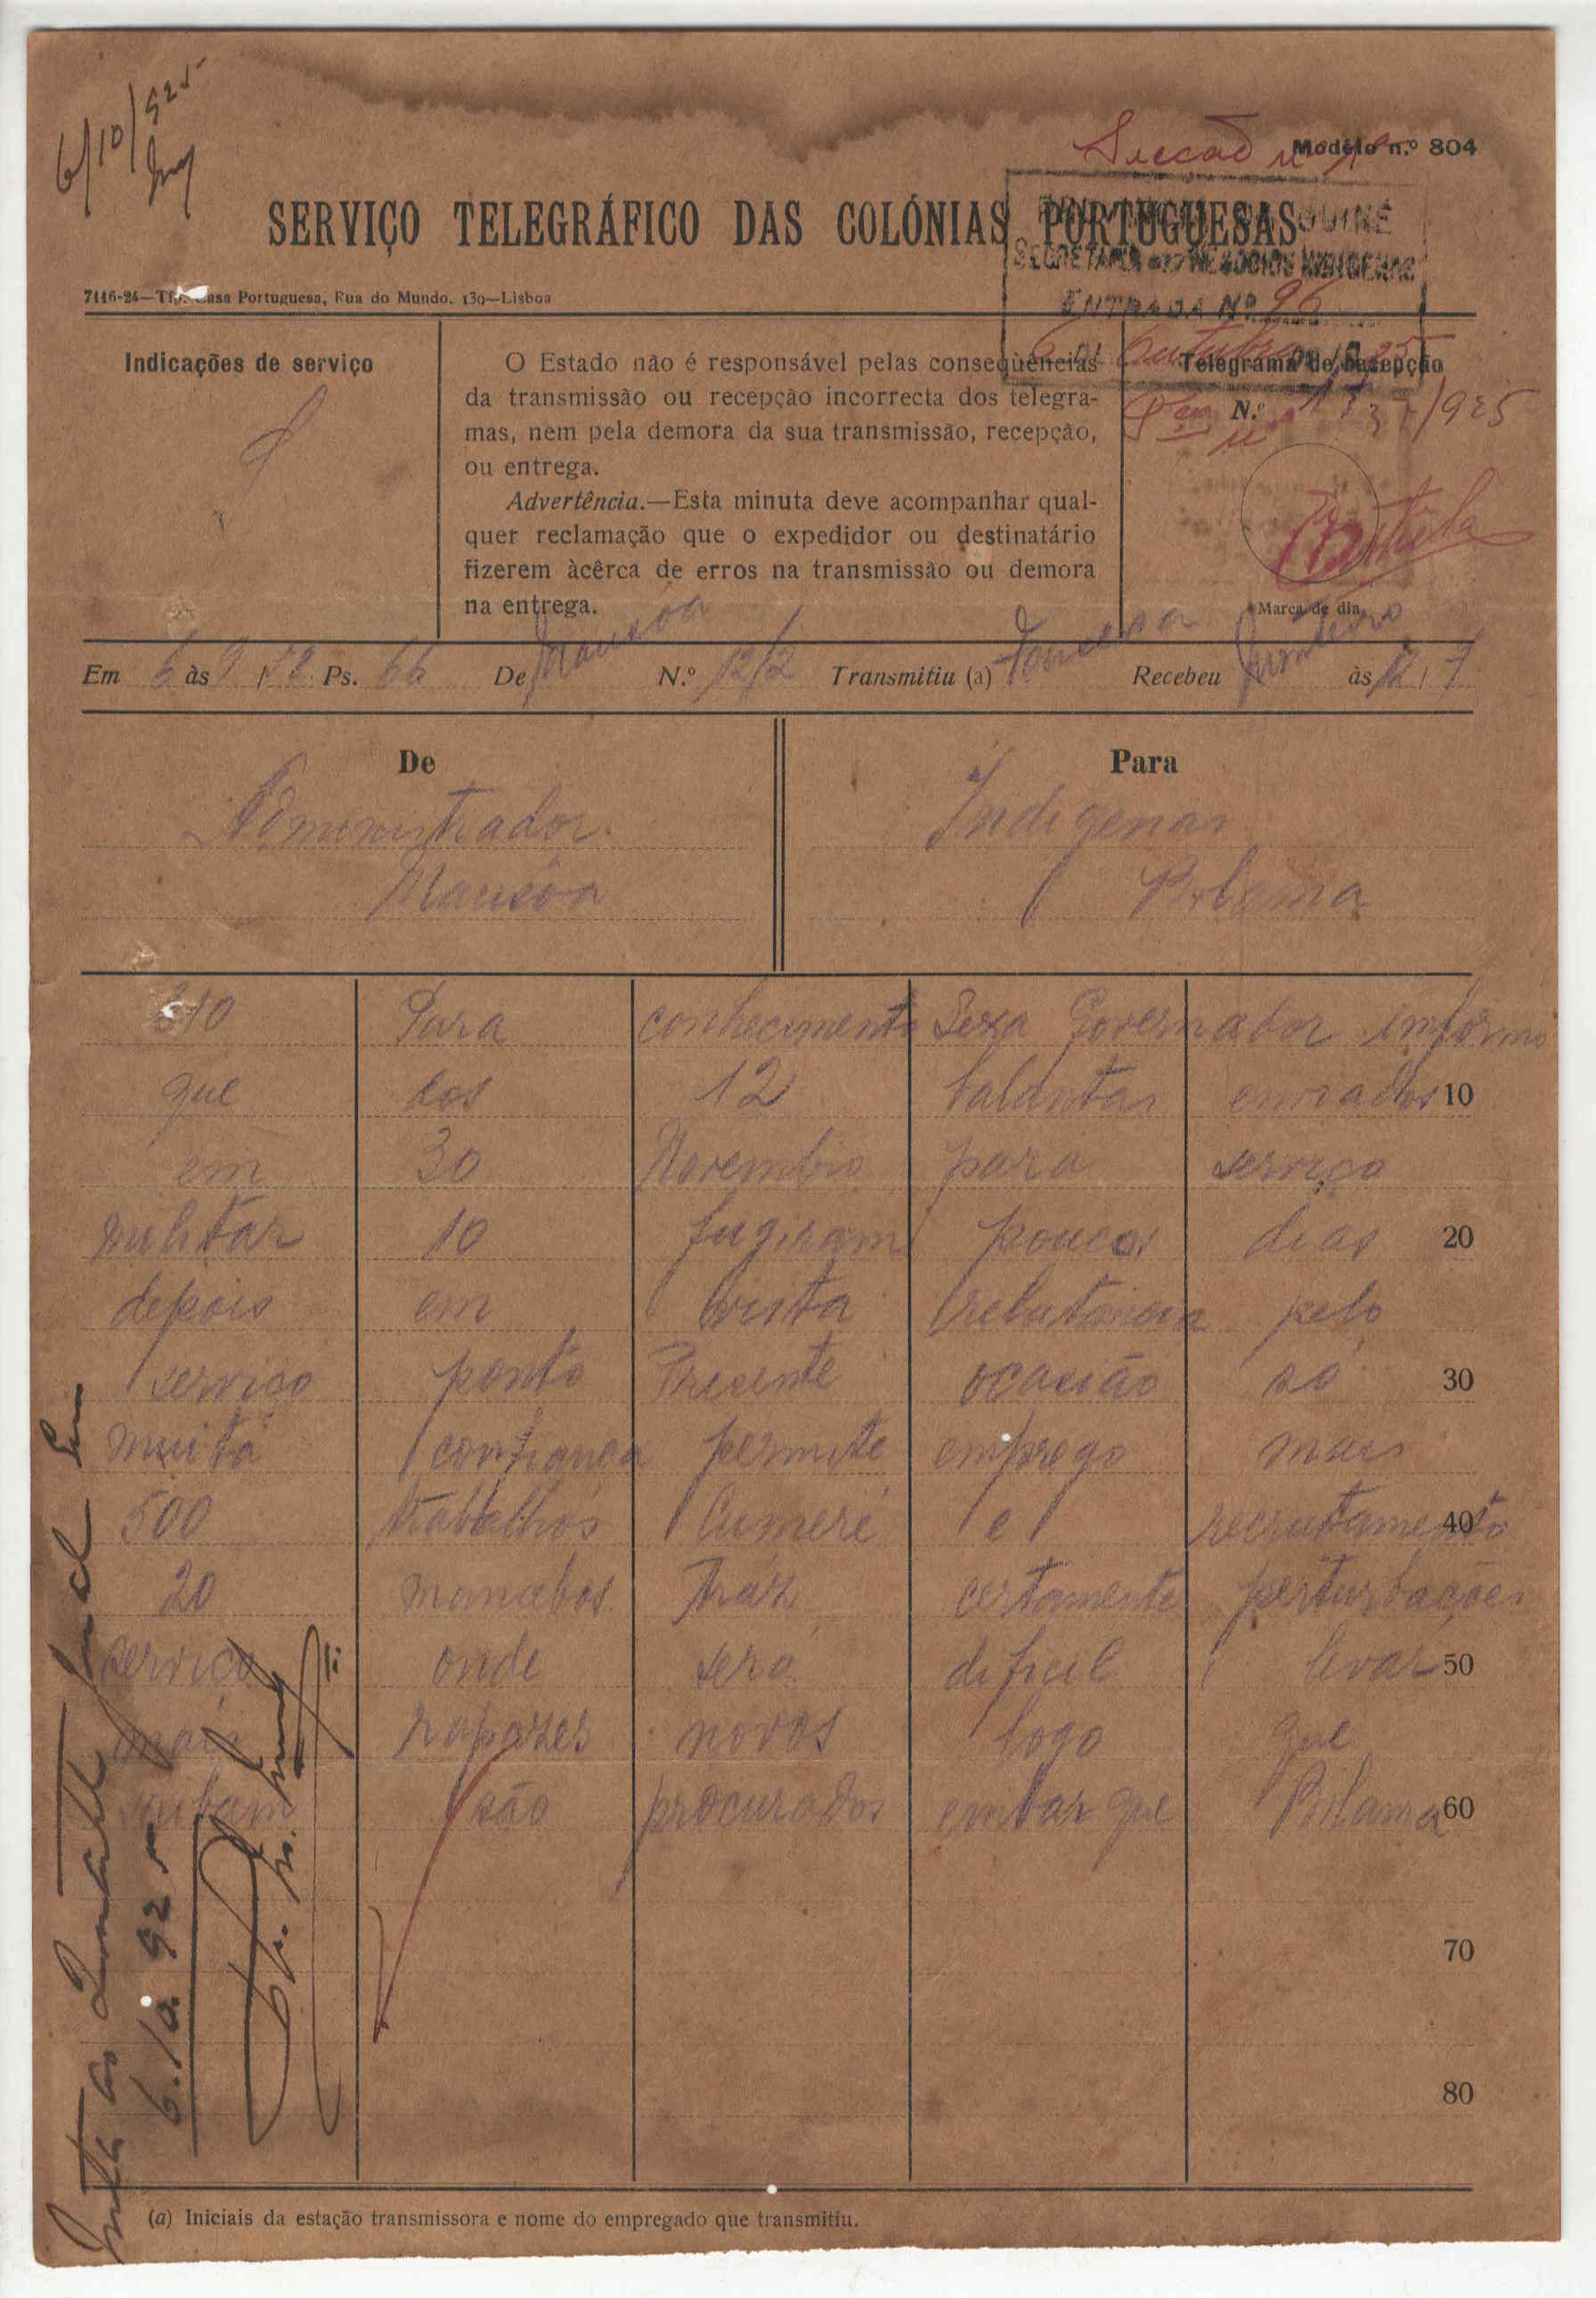 6/10/925
Secção
Modêlo n.º 804
SERVIÇO TELEGRÁFICO DAS COLÓNIAS PORTUGUESAS
GUINÉ
SECRETARIA DOS NEGOCIOS INDIGENAS
7116-24—Tip. Casa Portuguesa, Rua do Mundo, 139—Lisboa
ENTRADA Nº 96
6 de Outubro de 1925
Indicações de serviço
O Estado não é responsável pelas conseqùências
da transmissão ou recepção incorrecta dos telegra-
mas, nem pela demora da sua transmissão, recepção,
ou entrega.
Advertência.—Esta minuta deve acompanhar qual-
quer reclamação que o expedidor ou destinatário
fizerem àcêrca de erros na transmissão ou demora
na entrega.
Telegrama de recepção
N.º /925
Marca de dia
Em 6 às 9 Ps. 66 De Mansôa N.º 12/2 Transmitiu (a) Fonseca Recebeu Monteiro às 12 7
De
Administrador
Mansôa
Para
Indigenas
Bolama
310 Para conhecimento Sexa Governador informo
que dos 12 balantas enviados 10
em 30 Novembro para serviço
militar 10 fugiram poucos dias 20
depois em vista relutancia pelo
serviço ponto Presente ocasião só 30
muita confiança permite emprego mais
500 trabalhos Cumeré e recrutamento 40
20 mancebos traz certamente perturbações
serviço onde será dificil levar 50
mais rapazes novos logo que
saibam são procurados embarque Bolama 60
70
80
6.10.925
(a) Iniciais da estação transmissora e nome do empregado que transmitiu.